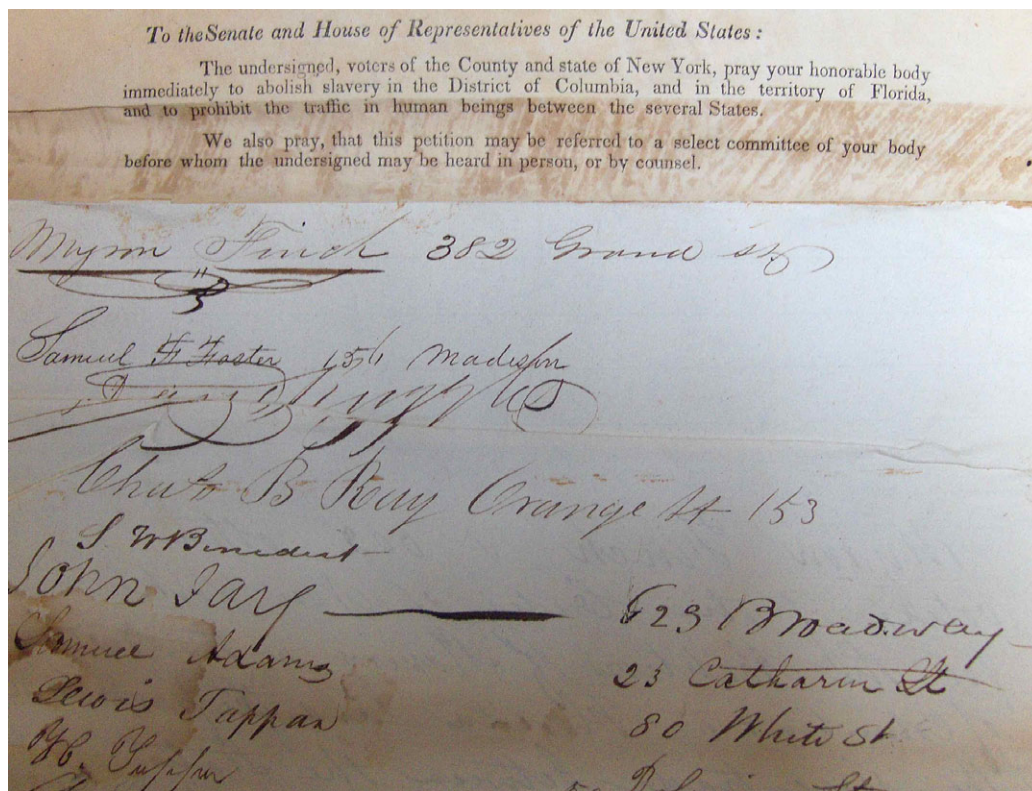 To the Senate and House of Representatives of the United States:
The undersigned, voters of the County and state of New York, pray your honorable body
immediately to abolish slavery in the District of Columbia, and in the territory of Florida,
and to prohibit the traffic in human beings between the several States.
We also pray, that this petition may be referred to a select committee of your body
before whom the undersigned may be heard in person, or by counsel.
Myron Finch 382 Grand St
Samuel Foster 156 Madison
B Ray Orange St 153
S W Benedict
John 623 Broadway
Samuel Adams 23 Catharin St
Lewis Tappan 80 White St.